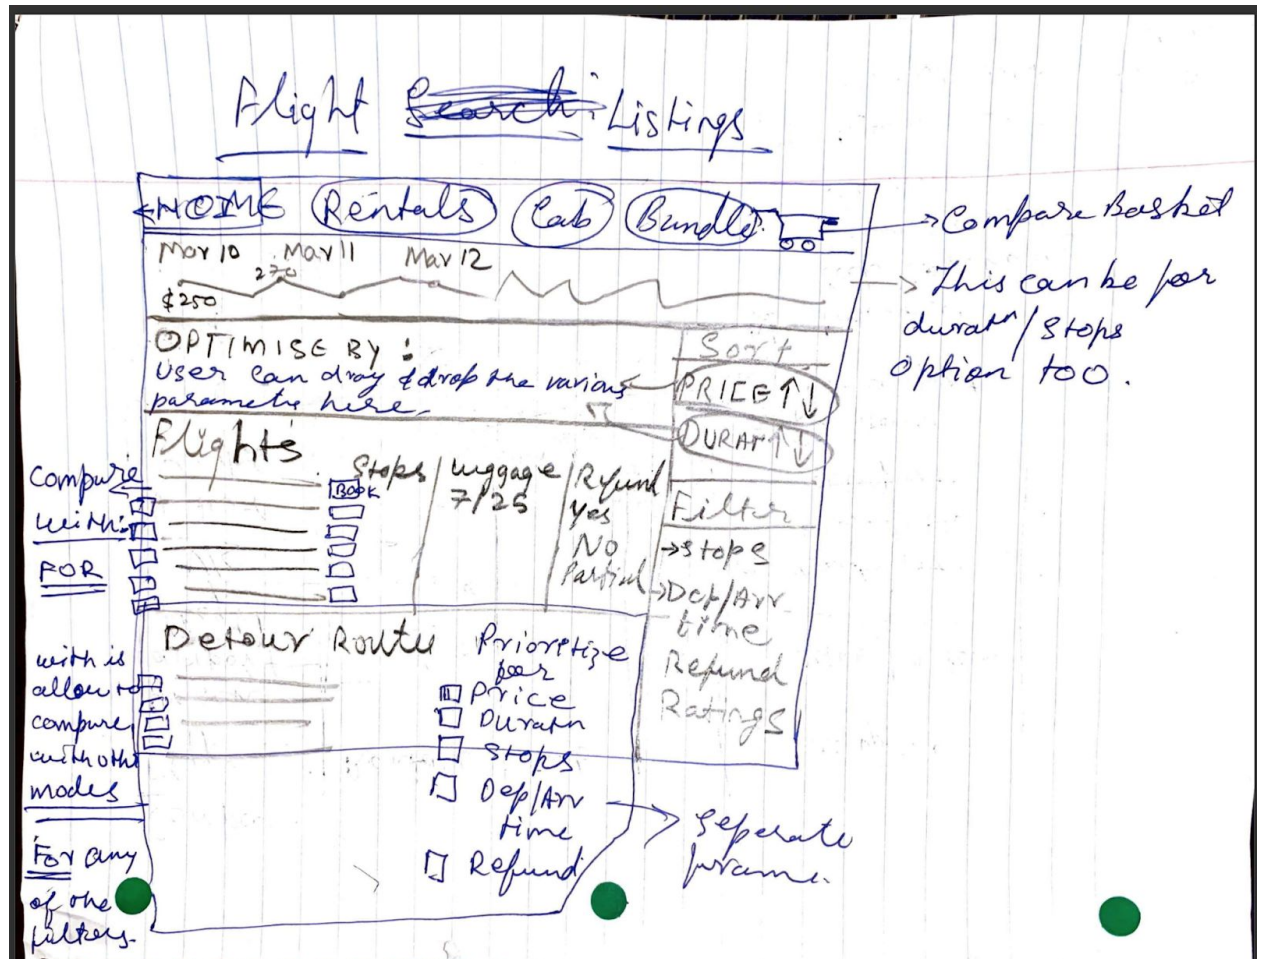 Flight Search Listings
HOME Rentals Cab Bundle
Compare Basket
Mar 10 Mar 11 Mar 12
270
$250
This can be for
duratn/stops
option too.
OPTIMISE BY :
User can drag & drop the various
parameters here
Sort
PRICE ↑↓
DURAT ↑↓
Flights
Stops
Luggage
7/25
Refund
Yes
No
Partial
BOOK
Compare
with:
FOR
Filter
→ Stops
→ Dep/Arr
time
Refund
Ratings
Detour Route
Prioritize
for
Price
Duratn
Stops
Dep/Arr
time
Refund
Seperate
frame.
with is
allow to
compare
with othr
modes
For any
of the
filters.